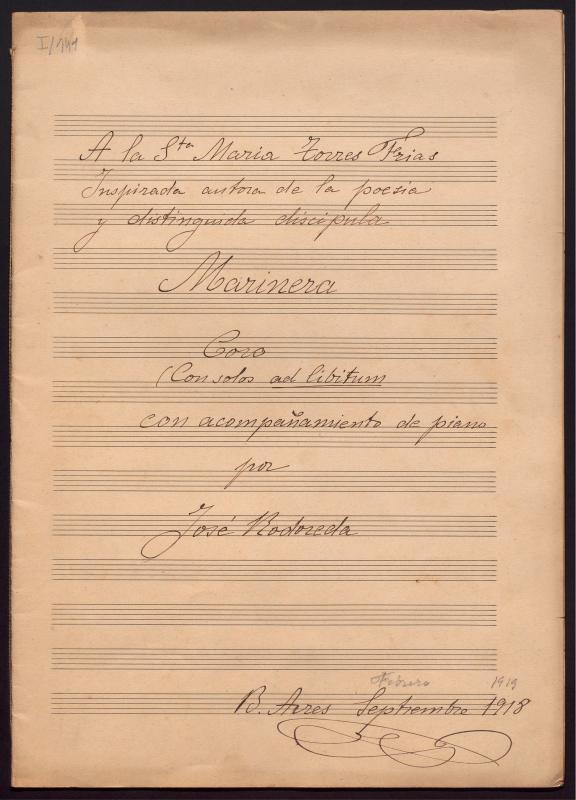 I/141
A la Sta Maria Torres Frias
Inspirada autora de la poesia
y distinguida discipula
Marinera
Coro
(Con solos ad libitum
con acompañamiento de piano
por
José Rodoreda
Febrero 1919
B. Aires Septiembre 1918